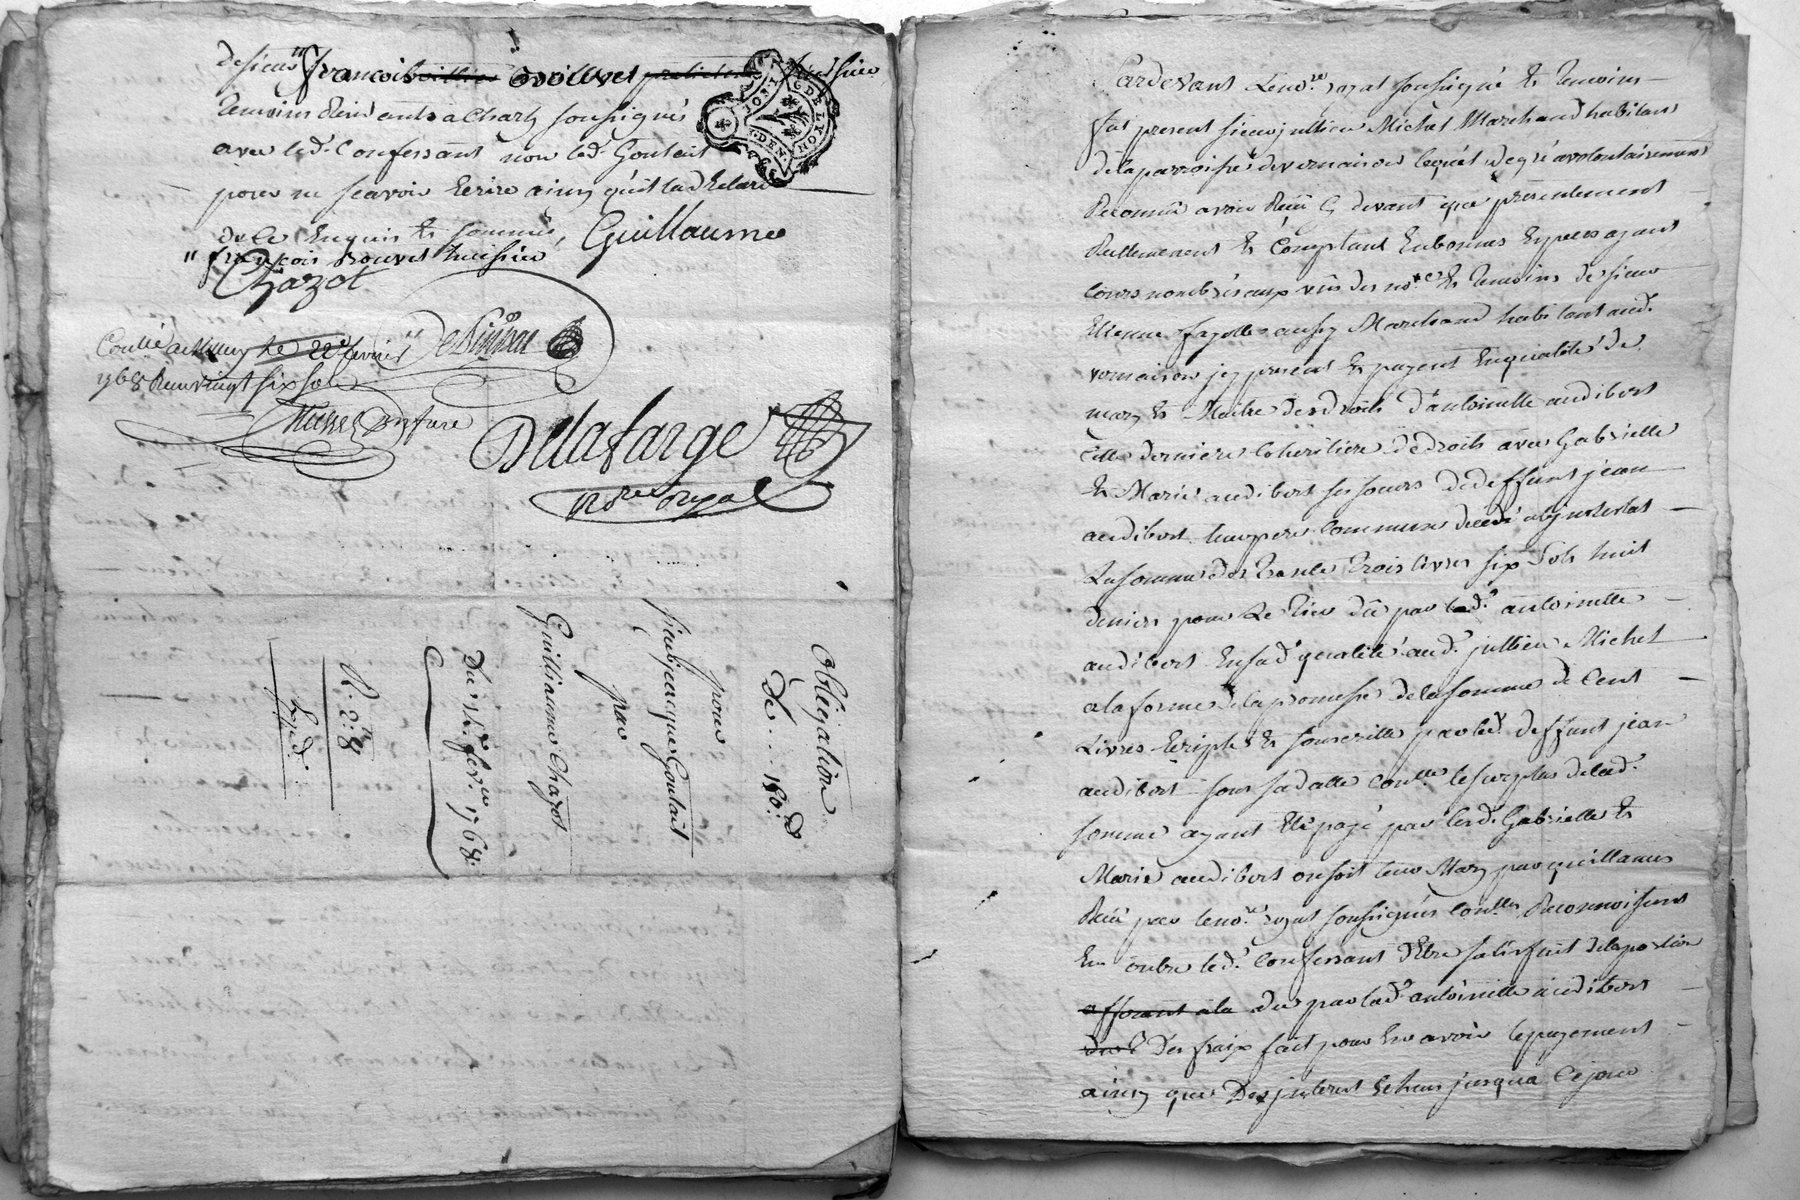 de sieurs francois rouvet huissier
temoins residents a Charly soussignés
avec led. Confessant non led. Goutait
pour ne scavoir Ecrire ainsy qu'il la declaré
de ce Enquis Et sommé, Guillaume
" françois rouvet huissier
Chazot
Coullé a Millery le 22e fevrier
1768 Receu vingt six sols
Delafarge
nore royal
Obligation
De . . . 150:ll
pour
sieur jacques Goutait
par
Guillaume Chazot
Du 14e fevr. 1768:
R. 2: 8
Exped.
GDE LYON
Pardevant Le nore royal soussigné Et temoins
fut present sieur jullien Michel Marchand habitant
de la parroisse de vernaison lequel de gré a volontairement
Reconnu avoir Receu cy devant que presentement
Reellement Et Comptant En bonnes Especes ayant
Cours nombrées aux vüs des nore Et temoins de sieur
Etienne fayolle aussy Marchand habitant aud.
vernaison jcy present Et payent En qualité de
mary Et Maitre des droits d'antoinette audibert
Cette derniere Coheritiere de droits avec Gabrielle
Et Marie audibert ses sœurs de deffunt jean
audibert leur pere Commun decedé abjntestat
La somme de Trente Trois livres six sols huit
deniers pour Le tier dû par lad. antoinette
audibert En sad. qualité aud. jullien Michel
a la forme de la promesse de la somme de Cent
Livres Ecripte Et souscritte par led. deffunt jean
audibert sous sa datte Coullée le surplus de lad.
somme ayant Eté payé par lesd. Gabrielle Et
Marie audibert ou soit leur Mary par quittances
Receu par le nore royal soussigné Coullées Reconnoissant
En outre led. Confessant d'Etre satisfait de la portion
afferant a la due par lad. antoinette audibert
des fraix fait pour En avoir le payement
ainsy que Des jnterest Echeus jusqua Ce jour